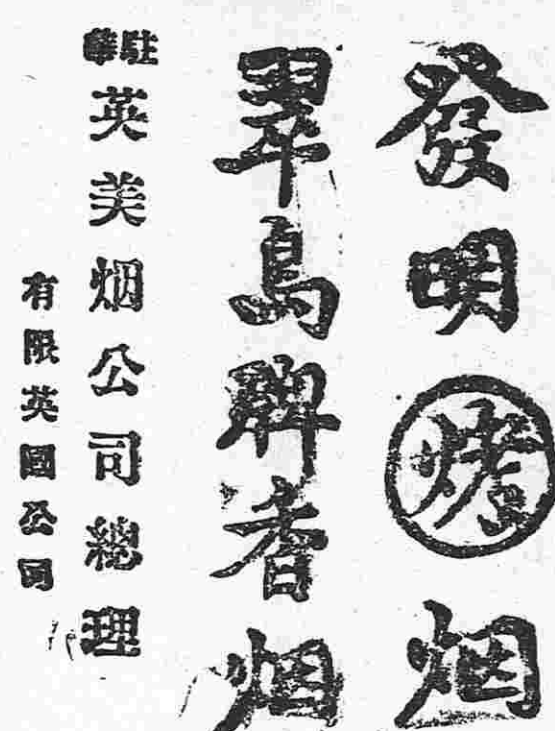 發明烤烟
翠鳥牌香烟
駐華
英美烟公司總理
有限英國公司